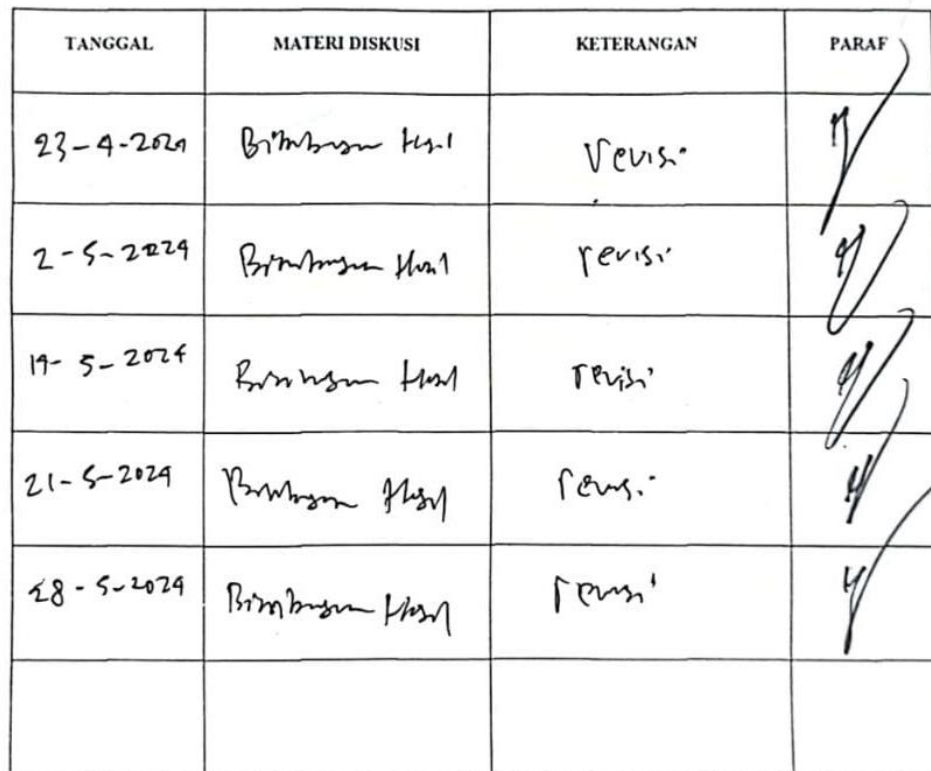 TANGGAL MATERI DISKUSI KETERANGAN PARAF
23-4-2024 Bimbingan Hasil revisi
2-5-2024 Bimbingan Hasil revisi
14-5-2024 Bimbingan Hasil revisi
21-5-2024 Bimbingan Hasil revisi
28-5-2024 Bimbingan Hasil revisi